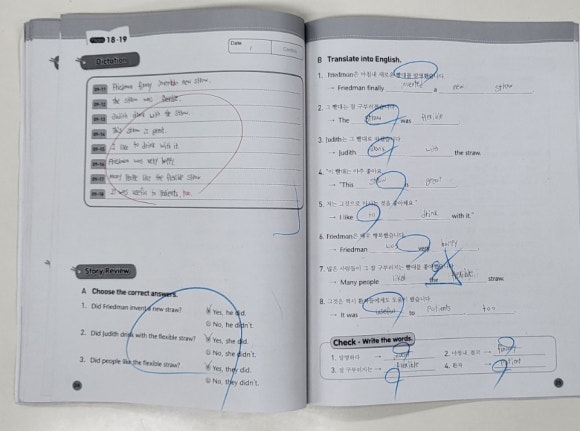 18-19
Date
Confirm
Dictation
Friedman finally invented new straw.
the straw was flexible.
Judith drank with the straw.
This straw is great.
I like to drink with it.
Friedman was very happy.
many people like the flexible straw
It was useful to patients, too.
Story Review
A Choose the correct answers.
1. Did Friedman invent a new straw?
Yes, he did.
No, he didn't.
2. Did Judith drink with the flexible straw?
Yes, she did.
No, she didn't.
3. Did people like the flexible straw?
Yes, they did.
No, they didn't.
B Translate into English.
1. Friedman은 마침내 새로운 빨대를 발명했습니다.
→ Friedman finally invented a new straw
2. 그 빨대는 잘 구부러졌습니다.
→ The straw was flexible
3. Judith는 그 빨대로
→ Judith drank with the straw.
4. "이 빨대는 아주 좋아요
→ "This straw is great
5. 저는 그것으로 마시는 것을 좋아해요."
→ I like to drink with it."
6. Friedman은 매우 행복했습니다.
→ Friedman was very happy.
7. 많은 사람들이 그 잘 구부러지는 빨대를
→ Many people liked the flexible straw.
8. 그것은 역시 환자들에게도 있습니다.
→ It was useful to patients too
Check - Write the words.
1. 발명하다 →
2. 마침내, 결국 →
3. 잘 구부러지는 → flexible
4. 환자 → patient